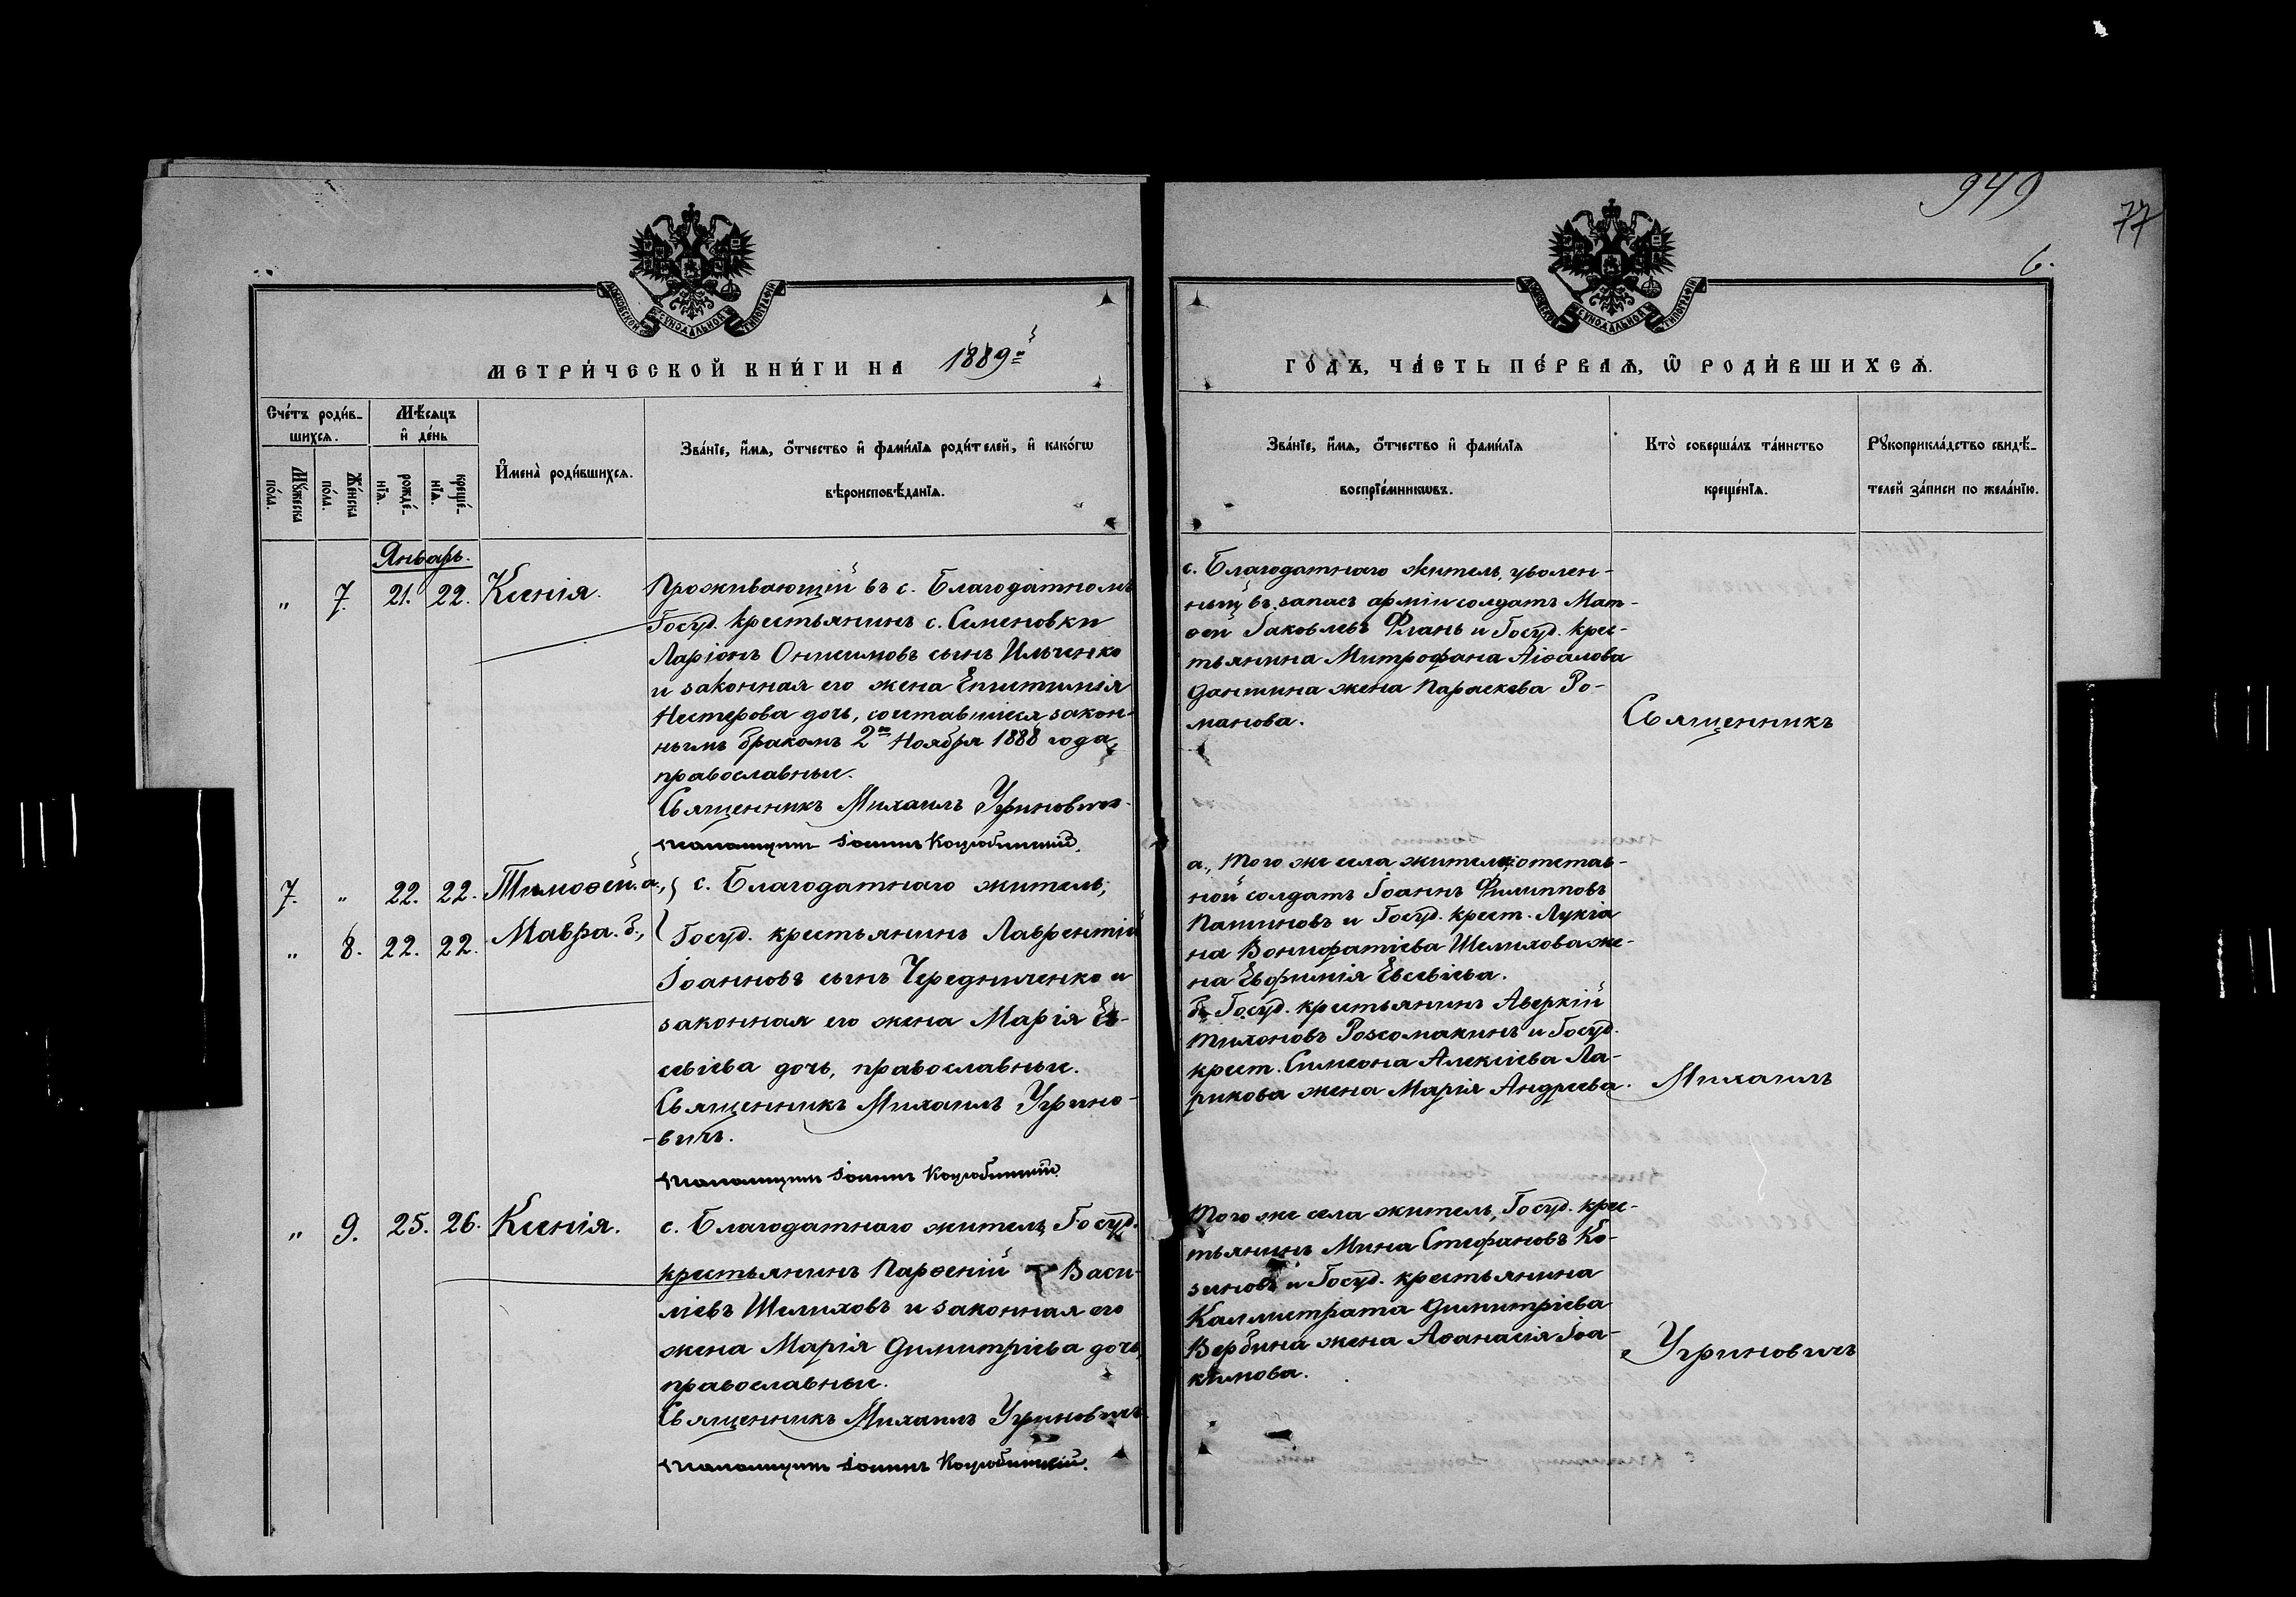 949
77
6.
МОСКОВСКОЙ СѴНОДАЛЬНОЙ ТИПОГРАФІИ
МОСКОВСКОЙ СѴНОДАЛЬНОЙ ТИПОГРАФІИ
МЕТРИ́ЧЕСКОЙ КНИ́ГИ НА 1889й
ГО́ДЪ, ЧА́СТЬ ПЕ́РВАѦ, Ѽ РОДИ́ВШИХСѦ.
Сче́тъ роди́в-
шихсѧ.
Мѣ́сѧцъ
и҆ де́нь
Мꙋ́жеска
по́ла.
Же́нска
по́ла.
рожде́-
нїѧ.
креще́-
нїѧ.
И҆мена̀ роди́вшихсѧ.
Зва́нїе, и҆́мѧ, ѻ҆́тчество и҆ фами́лїѧ роди́телей, и҆ како́гѡ
вѣроисповѣ́данїѧ.
Зва́нїе, и҆́мѧ, ѻ҆́тчество и҆ фами́лїѧ
воспрїе́мникѡвъ.
Кто̀ соверша́лъ та́инство
креще́нїѧ.
Рꙋкоприкла́дство свидѣ́-
телей за́писи по жела́нїю.
Январь.
" 7. 21. 22. Ксенія.
Проживающій въ с. Благодатномъ
Госуд. крестьянинъ с. Семеновки
Ларіонъ Онисимовъ сынъ Ильченко
и законная его жена Епистимія
Нестерова дочь, сочетавшіеся закон-
нымъ бракомъ 2го Ноября 1888 года,
православные.
Священникъ Михаилъ Угриновичъ.
Псаломщикъ Іоаннъ Коцюбинскій.
с. Благодатнаго житель, уволен-
ный въ запасъ арміи солдатъ Мат-
ѳей Іаковлевъ Флань и Госуд. крес-
тьянина Митрофана
жена Параскева Ро-
манова.
Священникъ
7. " 22. 22. Тимоѳей. а.,
" 8. 22. 22. Мавра. б.,
с. Благодатнаго житель,
Госуд. крестьянинъ Лаврентій
Іоанновъ сынъ Чередниченко и
законная его жена Марія Ев-
севіева дочь, православные.
Священникъ Михаилъ Угрино-
-вичъ.
Псаломщикъ Іоаннъ Коцюбинскій.
а., Того же села житель, отстав-
ной солдатъ Іоаннъ Филипповъ
Пашиновъ и Госуд. крест. Лукіа
на Вонифатіева Шелихова же-
на Евфимія Евсевіева.
б., Госуд. крестьянинъ Аверкій
Тихоновъ Россомакинъ и Госуд.
крест. Симеона Алексіева Ла-
рикова жена Марія Андреева.
Михаилъ
" 9. 25. 26. Ксенія.
с. Благодатнаго житель, Госуд.
крестьянинъ Парѳеній Васи-
ліевъ Шелиховъ и законная его
жена Марія Димитріева дочь,
православные.
Священникъ Михаилъ Угриновичъ.
Псаломщикъ Іоаннъ Коцюбинскій.
Того же села житель, Госуд. крес-
тьянинъ Мина Стефановъ Ко-
зиновъ и Госуд. крестьянина
Каллистрата Димитріева
Вербина жена Аѳанасія Іоа-
кимова.
Угриновичъ